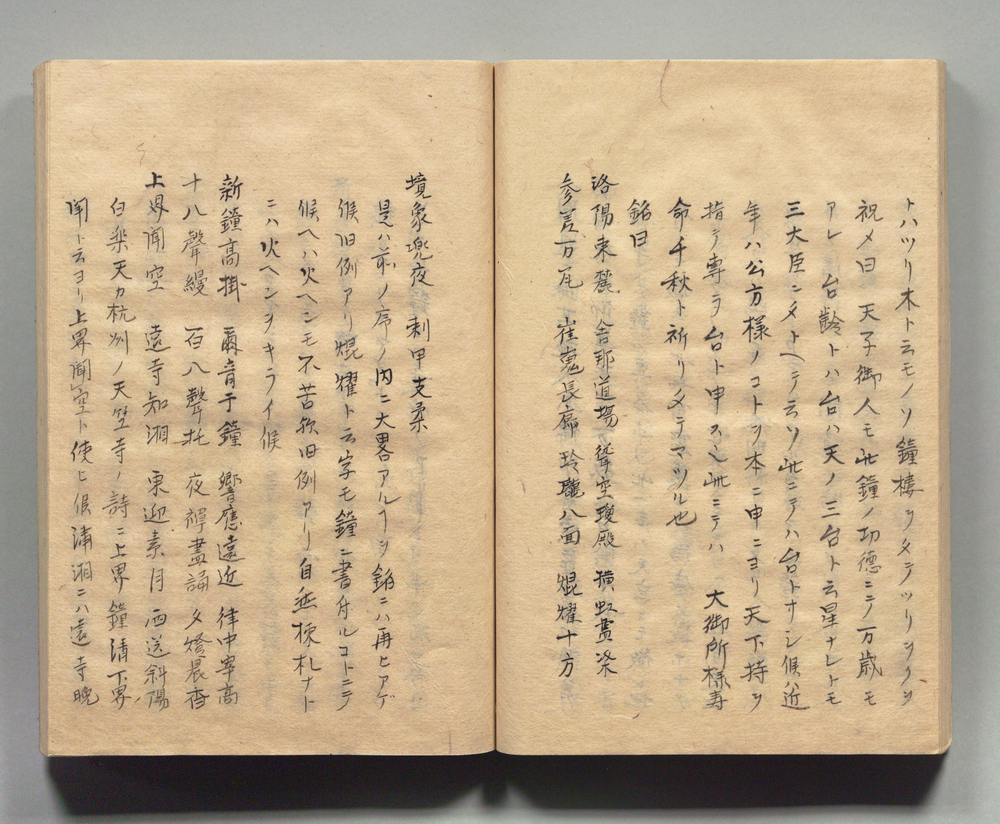 トハツリ木ト云モノソ鐘樓ヲタテツリシクヲ
祝メ曰 天子御人モ此鐘ノ功德ニテ万歳モ
アレ 台齡トハ台ハ天ノ三台ト云星ナレトモ
三大臣ニメトヘテ云ソ此ニテハ台トナシ候ハ近
年ハ公方様ノコトヲ本ニ申ニヨリ天下持ヲ
指テ專ラ台ト申スヘ此ニテハ 大御所様寿
命千秋ト祈リメテマツル也
銘曰
洛陽東麓 舎那道場 聳空瓊殿 横虹畫梁
参差万瓦 崔嵬長廊 玲瓏八面 焜燿十方
境象兜夜 刹甲支桑
是ハ前ノ序ノ内ニ大畧アルヿヲ銘ニハ再ヒアゲ
候旧例アリ焜燿ト云字モ鐘ニ書付ルコトニテ
候ヘハ火ヘンモ不苦欤旧例アリ自然棟札ナト
ニハ火ヘンヲキライ候
新鐘高掛 爾音于鐘 響應遠近 律中宰商
十八聲縵 百八聲忙 夜禅晝誦 夕燈晨香
上界聞空 遠寺知湘 東迎素月 西送斜陽
白樂天カ杭州ノ天竺寺ノ詩ニ上界鐘清下界
聞ト云ヨリ上界聞空ト使ヒ候瀟湘ニハ遠寺晩